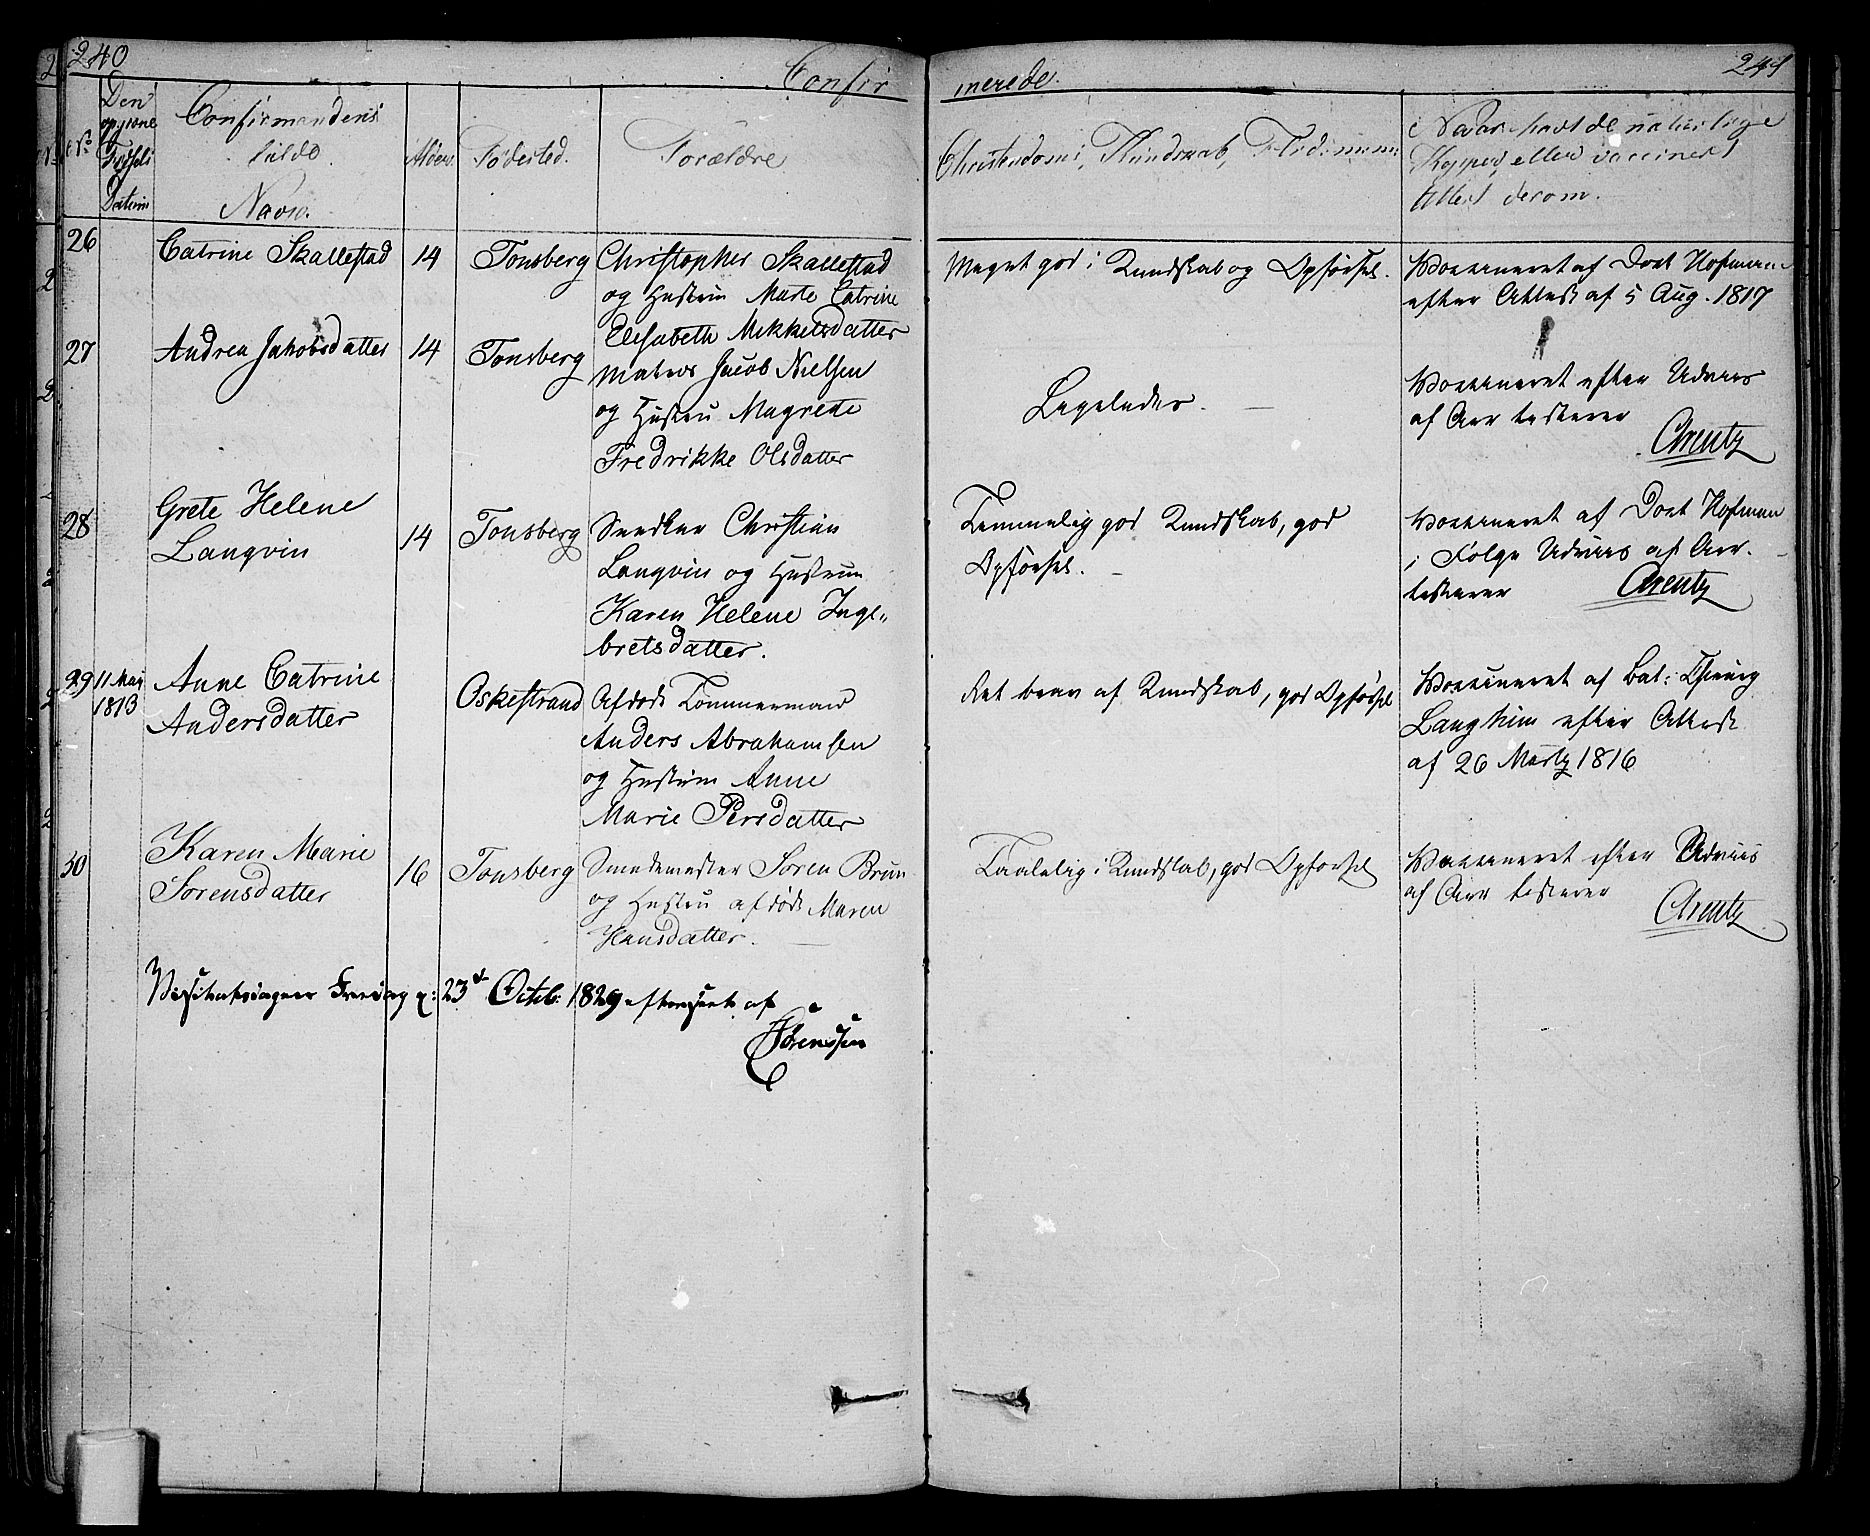 240
Confir
merede.
241
No
Den
opgivne
Fødsels
Datum
Confirmandens
fulde
Navn.
Alder.
Fødested.
Forældre
Christendoms, Kundskab,
Naar havt de naturlige
Kopper, eller vaccineret
Attest derom.
26
Catrine Skallestad
14
Tonsberg
Christopher Skallestad
og Hustru Marte Catrine
Elisabeth Mikkelsdatter
Meget god i Kundskab og Opførsel.
Vaccineret af Doct Hofman
efter Attest af 5 Aug. 1817
27
Andrea Jakobsdatter
14
Tonsberg
Matros Jacob Nielsen
og Hustru Magrete
Fredrikke Olsdatter
Ligeledes.
Vaccineret efter Udviis
af Arr
Arentz
28
Grete Helene
Langvin
14
Tonsberg
Snedker Christian
Langvin og Hustrue
Karen Helene Inge-
bretsdatter.
Temmelig god Kundskab, god
Opførsel.
Vaccineret af Doct Hofman
i Følge Udviis af Arr.
Arentz
29
11 Mai
1813
Anne Catrine
Andersdatter
Oskestrand
Afdøde Tømmermand
Anders Abrahamsen
og Hustrue Anne
Marie Persdatter
Ret brav af Kundskab, god Opførsel
Vaccineret af Bat:
Langhim efter Attest
af 26 Martz 1816
30
Karen Marie
Sorensdatter
16
Tonsberg
Smedemester Soren Brun
og Hustru afdøde Maren
Hansdatter.
Taalelig i Kundskab, god Opførsel
Vaccineret efter Udviis
af Arr
Arentz
23d Octob: 1829 efterseet af
Sørenssen